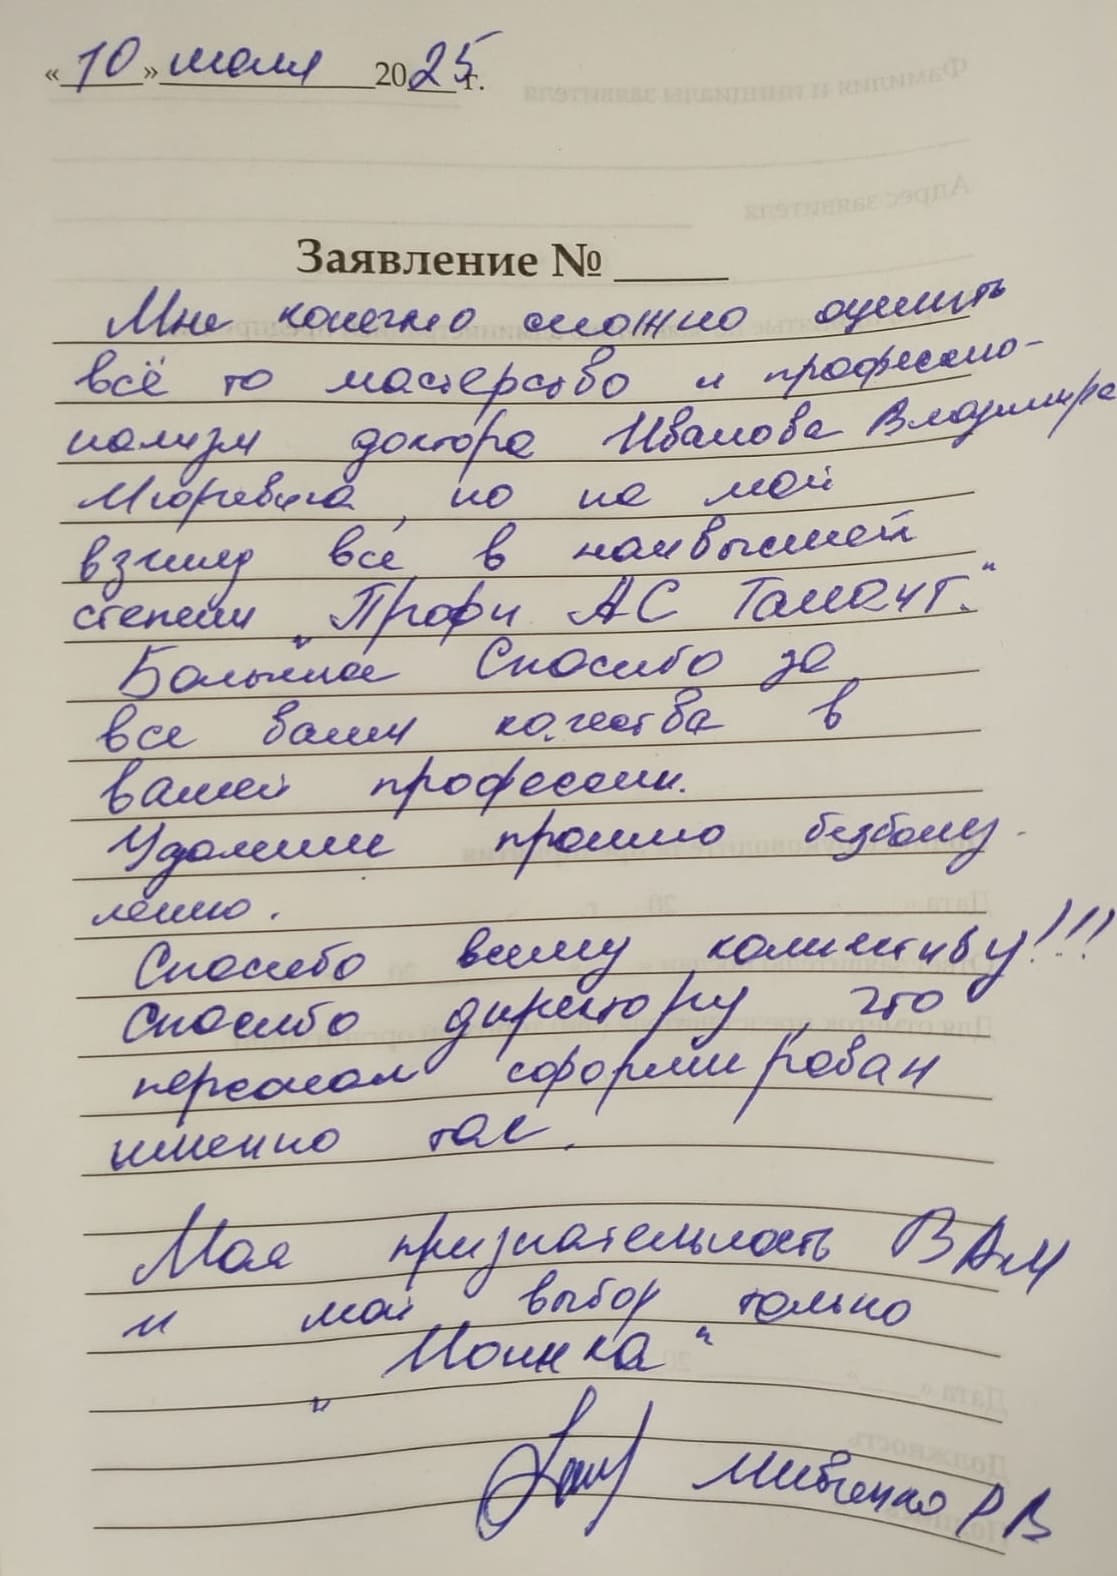 «10» июля 2025 г.
Заявление № ____
Мне конечно сложно оценить
всё то мастерство и профессио-
нализм доктора Иванова Владимира
Игоревича, но на мой
взгляд всё в наивысшей
степени „Профи АС Талант."
Большое Спасибо за
все ваши качества в
вашей профессии.
Удаление прошло безболез-
ленно.
Спасибо всему коллективу!!!
Спасибо директору, что
персонал сформирован
именно так.
Моя признательность ВАм
и мой выбор только
„                "
РВ